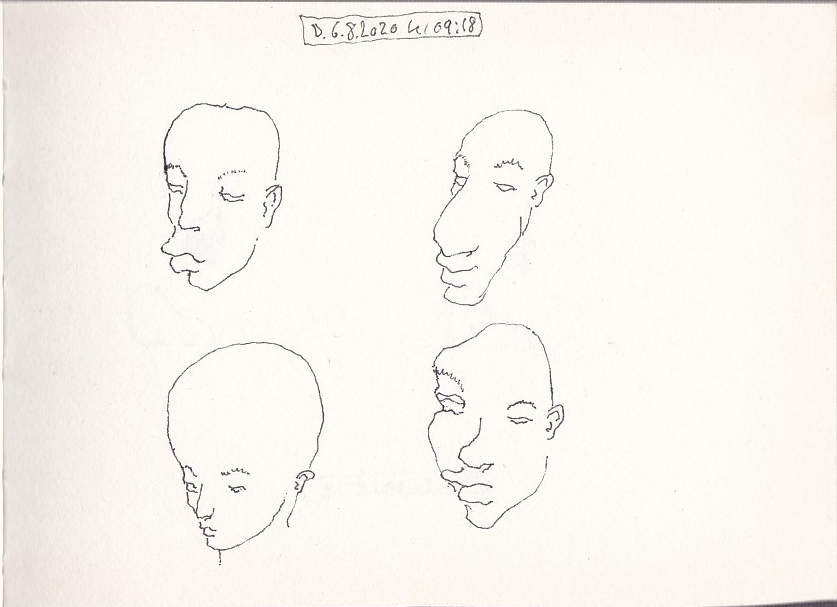 D. 6.8.2020 kl 09:18